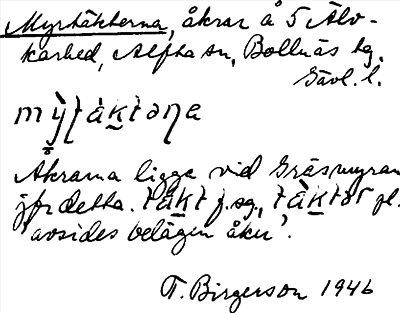 Myrtäkterna, åkrar å S Älv-
karhed, Alfta sn, Bollnäs tg.
Gävl. l.
mỳʈàk̠təɳa
Åkrarna ligga vid Gräsmyran
jfr detta. tàk̠t f. sg., tàk̠tər pl.
'avsides belägen åker'.
T. Birgerson 1946